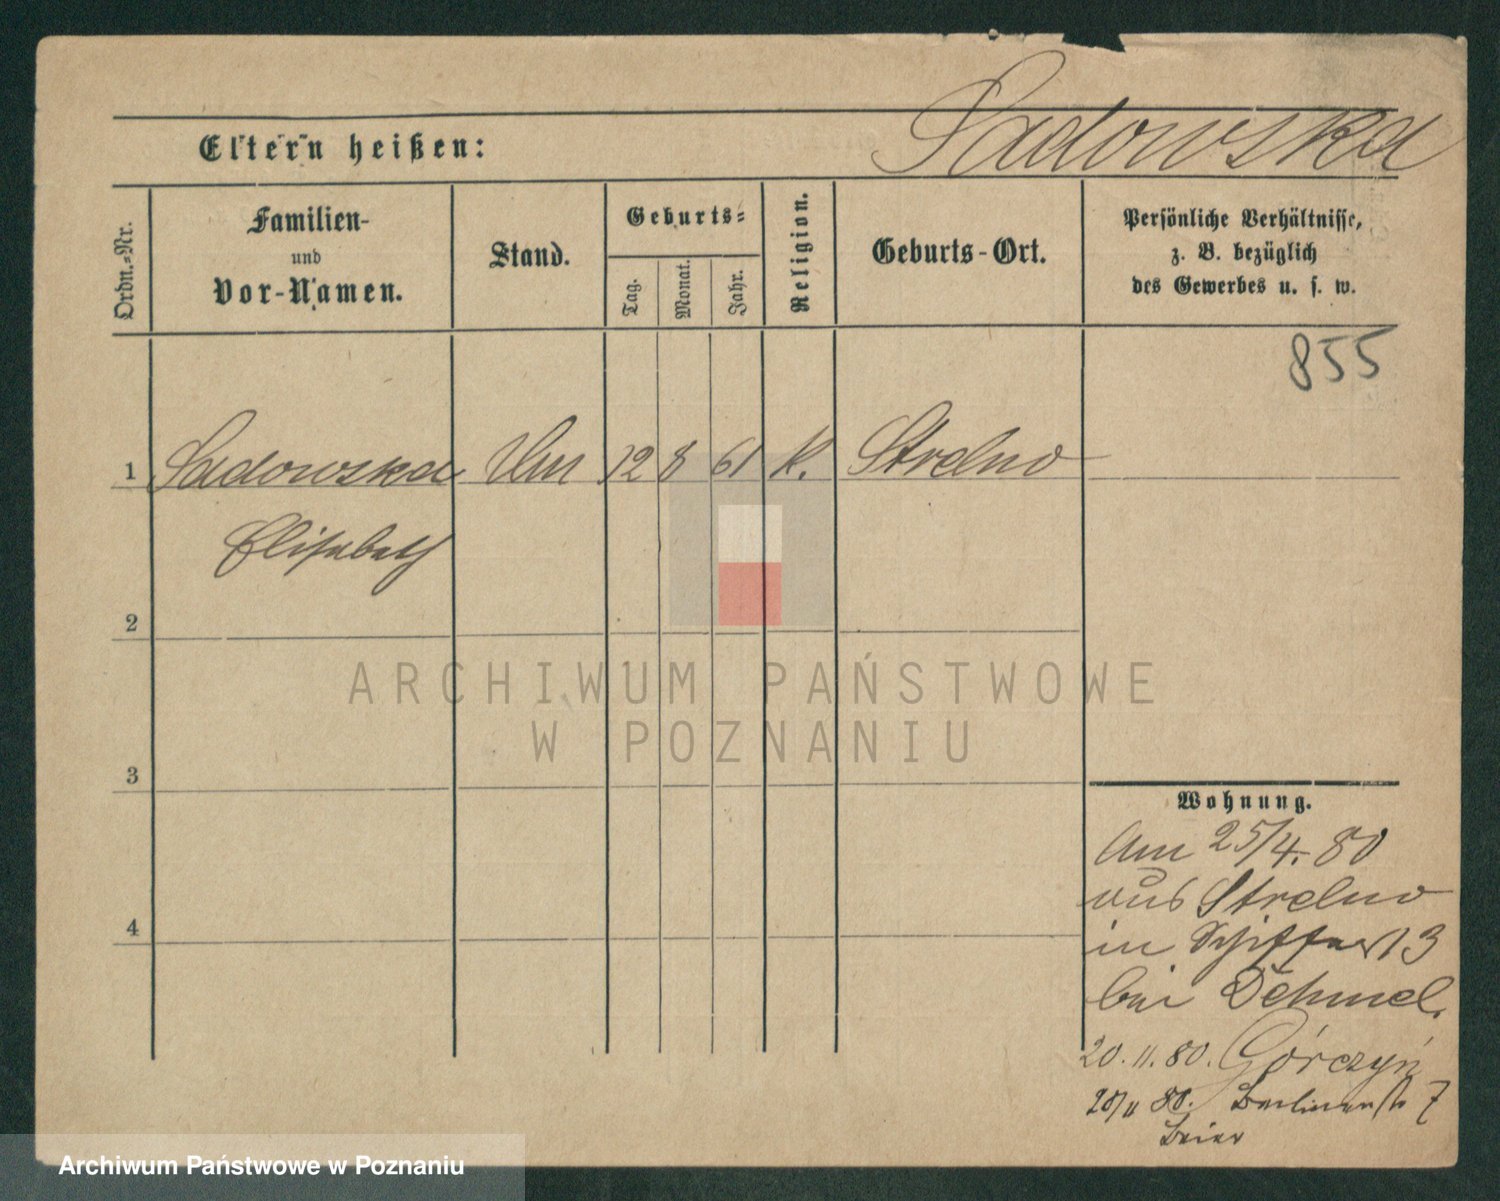 Sadowska
Eltern heißen:
Ordn.-Nr.
Familien-
und
Vor-Namen.
Stand.
Geburts-
Tag.
Monat.
Jahr.
Religion.
Geburts-Ort.
Persönliche Verhältnisse,
z. B. bezüglich
des Gewerbes u. s. w.
855
1 Sadowska 12 8 61 K. Strelno
Elisabeth
2
3
4
ARCHIWUM PAŃSTWOWE
W POZNANIU
Wohnung.
Am 25/4. 80
aus Strelno
in 13
bei Dehmel.
20.11.80. Górczyn
80. Berlinerstr 7
Beier
Archiwum Państwowe w Poznaniu